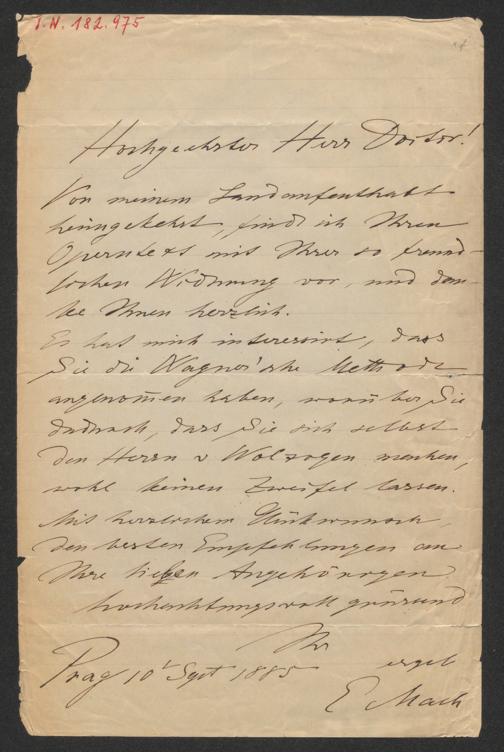 I.N. 182.975
Hochgeehrter Herr Doctor!
Von meinem Landaufenthalt
heimgekehrt, finde ich Ihren
Operntext mit Ihrer so freund-
lichen Widmung vor, und dan-
ke Ihnen herzlich.
Es hat mich interessirt, dass
Sie die Wagner'sche Methode
angenom̅en haben, worüber Sie
dadurch, dass Sie sich selbst
den Herrn v Wolzogen nennen,
wohl keinen Zweifel lassen.
Mit herzlichem Glückwunsch,
den besten Empfehlungen an
Ihre lieben Angehörigen
hochachtungsvoll grüssend
Ihr
ergeb
Prag 10t Sept 1885
E Mach